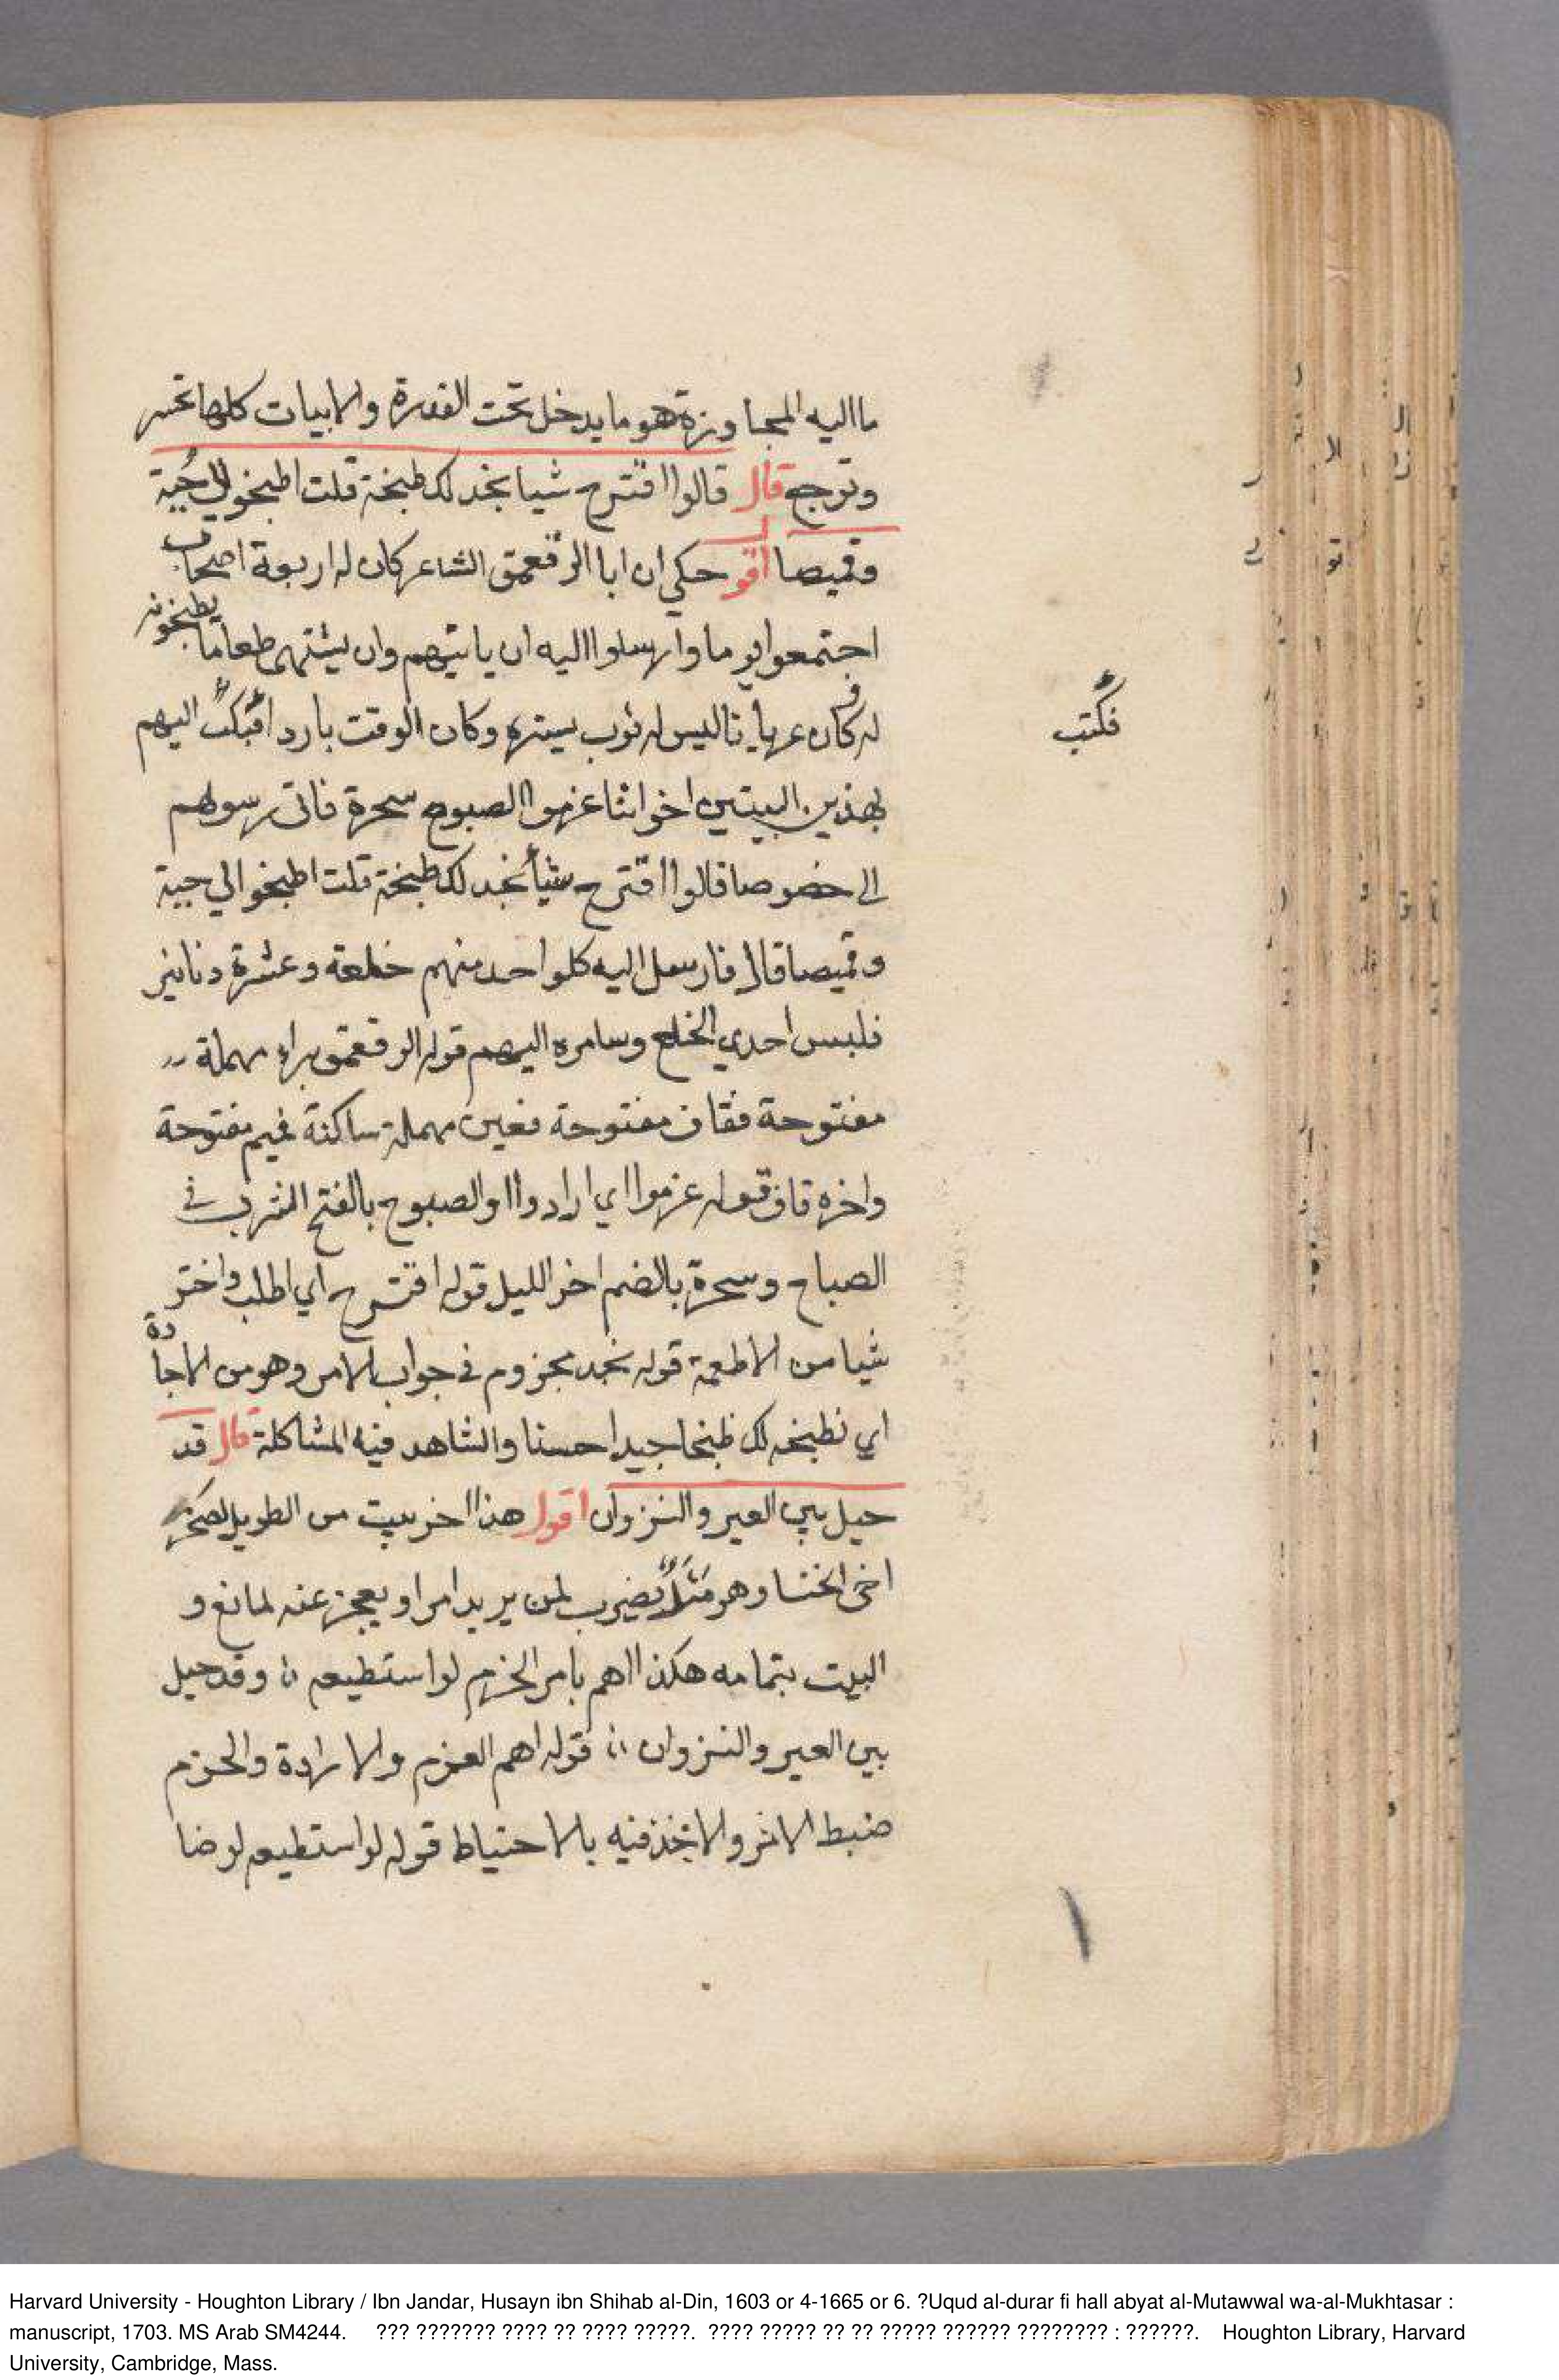 ما اليه المجاوزة هو ما يدخل تحت القدرة والابيات كلها تحسر
وتوجع قال قالوا اقترح شيا نجد لك طبخه قلت اطبخوا لي جبة
وقميصا اقول حكي ان ابا الرقعمق الشاعر كان له اربعة اصحاب
اجتمعوا يوما وارسلوا اليه ان ياتيهم وان يشتهى طعاما يطبخونه
له وكان عريانا ليس له ثوب يستره وكان الوقت باردا فكتب اليهم
فكتب
بهذين البيتين اخواننا عزموا الصبوح سحرة فاتى رسولهم
الى خصوصا قالوا اقترح شيأ نجد لك طبخه قلت اطبخوا لي جبة
وقميصا قال فارسل اليه كلواحد منهم خلعة وعشرة دنانير
فلبس احدي الخلع وسامره اليهم قوله الرقعمق براء مهملة
مفتوحة فقاف مفتوحة فعين مهملة ساكنة فميم مفتوحة
واخره قاف قوله عزموا اي ارادوا والصبوح بالفتح الشرب في
الصباح وسحرة بالضم اخر الليل قوله اقترح اي اطلب واختر
شيا من الاطعمة قوله نجد مجزوم في جواب الامر وهو من الاجادة
اي نطبخه لك طبخا جيدا حسنا والشاهد فيه المشاكلة قال قد
حيل بين العير والنزوان اقول هذا اخر بيت من الطويل لصخر
اخى الخنسا وهو مثل يضرب لمن يريد امرا ويعجز عنه لمانع و
البيت بتمامه هكذا اهم بامر الحزم لو استطيعه وقد حيل
بين العير والنزوان قوله اهم العزم والارادة والحزم
ضبط الامر والاخذ فيه بالاحتياط قوله لو استطيعه لو ضا
Harvard University - Houghton Library / Ibn Jandar, Husayn ibn Shihab al-Din, 1603 or 4-1665 or 6. ?Uqud al-durar fi hall abyat al-Mutawwal wa-al-Mukhtasar :
manuscript, 1703. MS Arab SM4244. ??? ??????? ???? ?? ???? ?????. ???? ????? ?? ?? ????? ?????? ???????? : ??????. Houghton Library, Harvard
University, Cambridge, Mass.